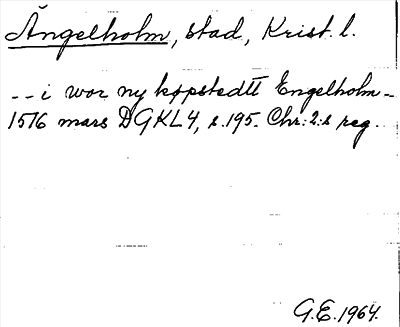 Ängelholm, stad, Krist. l.
-- i wor ny køpstedtt Engelholm --
1516 mars DGKL4, s.195. Chr:2:s reg.
G.E.1964.